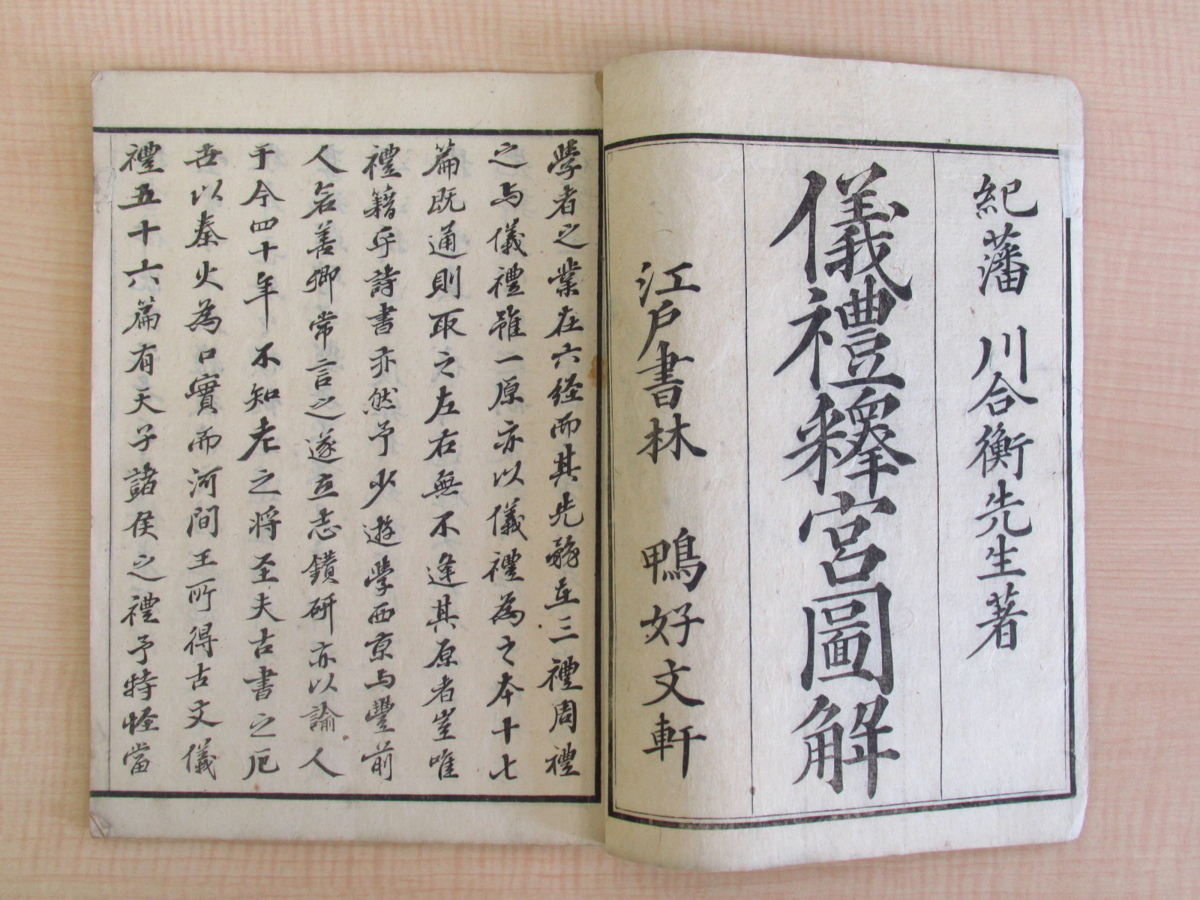 紀藩 川合衡先生著
儀禮釋宮圖解
江戸書林 鴨好文軒
學者之業在六経而其先務在三禮周禮
之与儀禮雖一原亦以儀禮為之本十七
篇既通則取之左右無不逢其原者豈唯
禮籍乎詩書亦然予少遊學西京与豐前
人倉善卿常言之遂立志鑚研亦以諭人
于今四十年不知老之將至夫古書之厄
吾以秦火為口實而河間王所得古文儀
禮五十六篇有天子諸侯之禮予特怪當